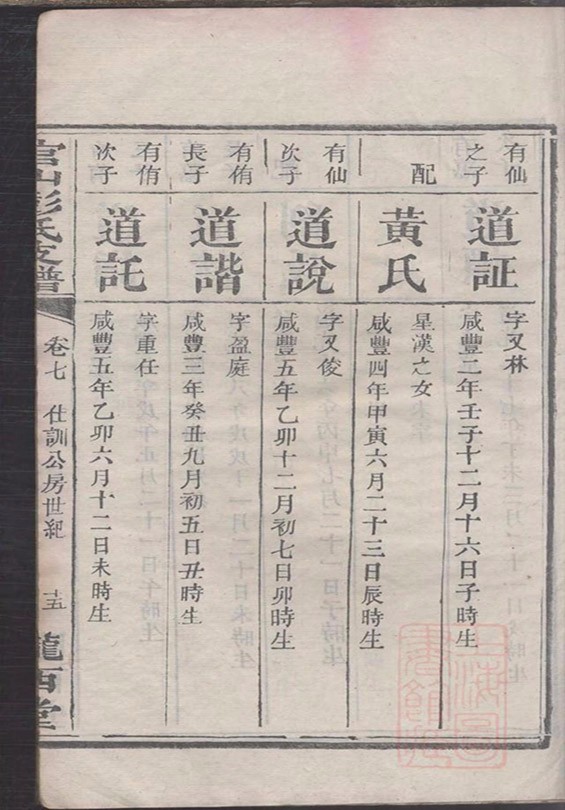 有仙
之子
道証
字又林
咸豐二年壬子十二月十六日子時生
配
黃氏
星漢之女
咸豐四年甲寅六月二十三日辰時生
有仙
次子
道說
字又俊
咸豐五年乙卯十二月初七日卯時生
有侑
長子
道諧
字盈庭
咸豐三年癸丑九月初五日丑時生
有侑
次子
道託
字重任
咸豐五年乙卯六月十二日未時生
官山彭氏支譜
卷七 仕訓公房世紀
十五
隴西堂
上海圖書館藏